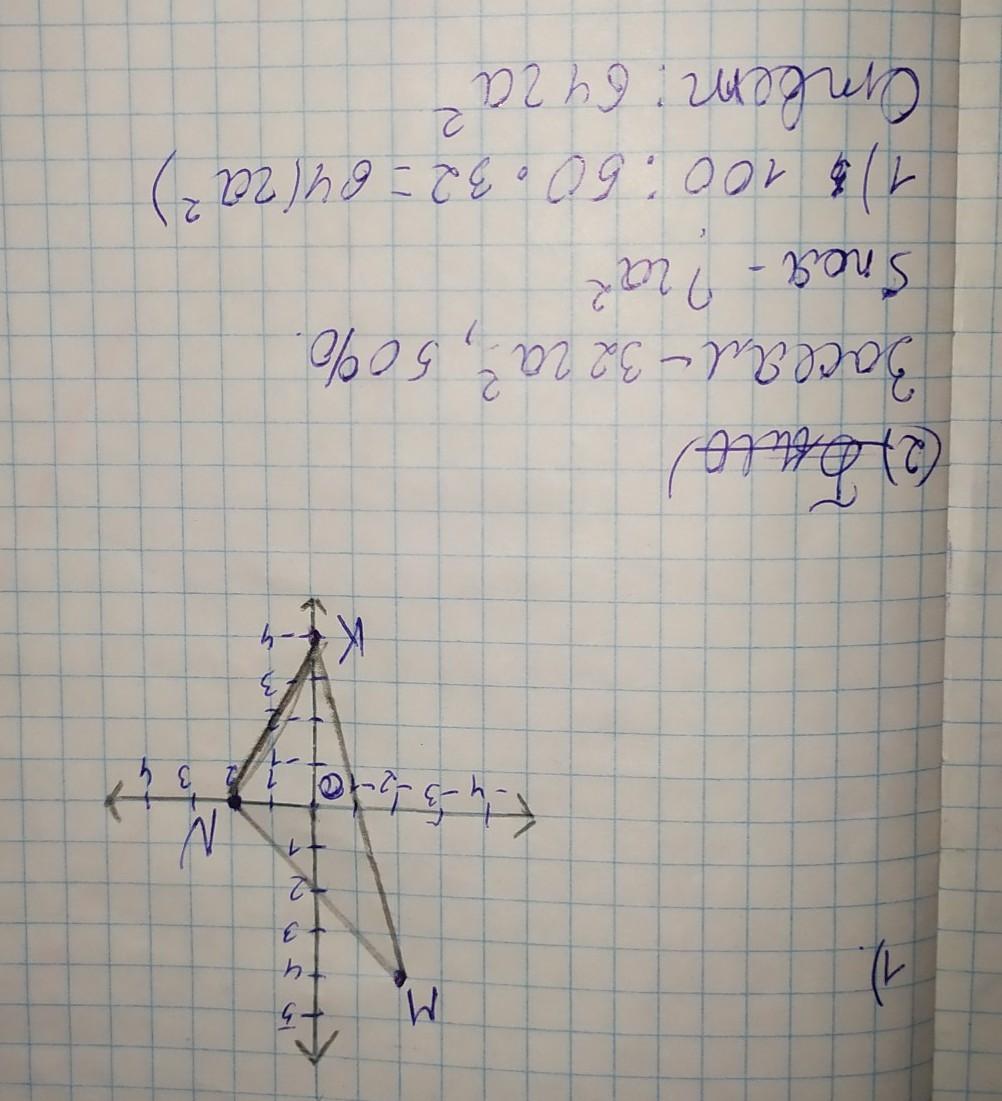 1).
M
5
4
3
2
1
N
-4 -3 -2 0 1 2 3 4
-1
3
-4
K
2)
Засеял - 32 га², 50%.
Sпоя - ? га²
1) 100 : 50 · 32 = 64 (га²)
Ответ: 64 га²